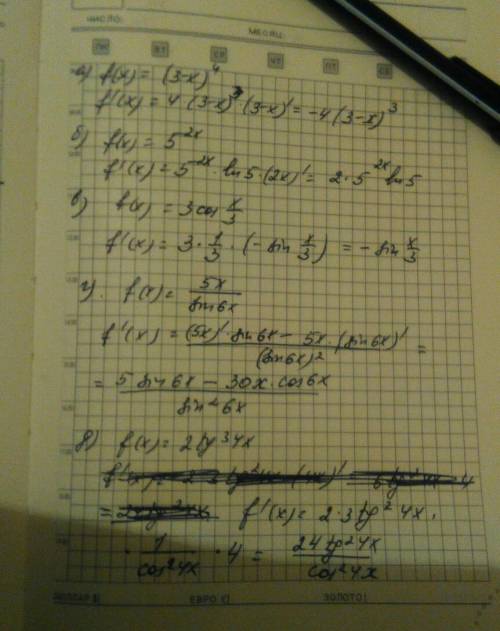 ЧИСЛО:
МЕСЯЦ:
ПН ВТ СР ЧТ ПТ СБ
а) f(x) = (3-x)⁴
f'(x) = 4 (3-x)³ · (3-x)' = -4 (3-x)³
б) f(x) = 5²ˣ
f'(x) = 5²ˣ · ln5 · (2x)' = 2 · 5²ˣ ln5
в) f(x) = 3 cos x/3
f'(x) = 3 · 1/3 · (- sin x/3) = - sin x/3
г). f(x) = 5x / sin6x
f'(x) = (5x)' · sin6x - 5x · (sin6x)' / (sin6x)² =
= 5 sin6x - 30x · cos6x / sin²6x
д) f(x) = 2 tg³4x
= f'(x) = 2·3 tg²4x ·
· 1/cos²4x · 4 = 24 tg²4x / cos²4x
ДОЛЛАР $| ЕВРО €| ЗОЛОТО|